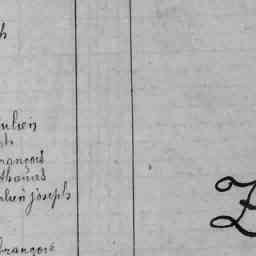 h
ulien
ph
rançois
thomas
ulien joseph
françois